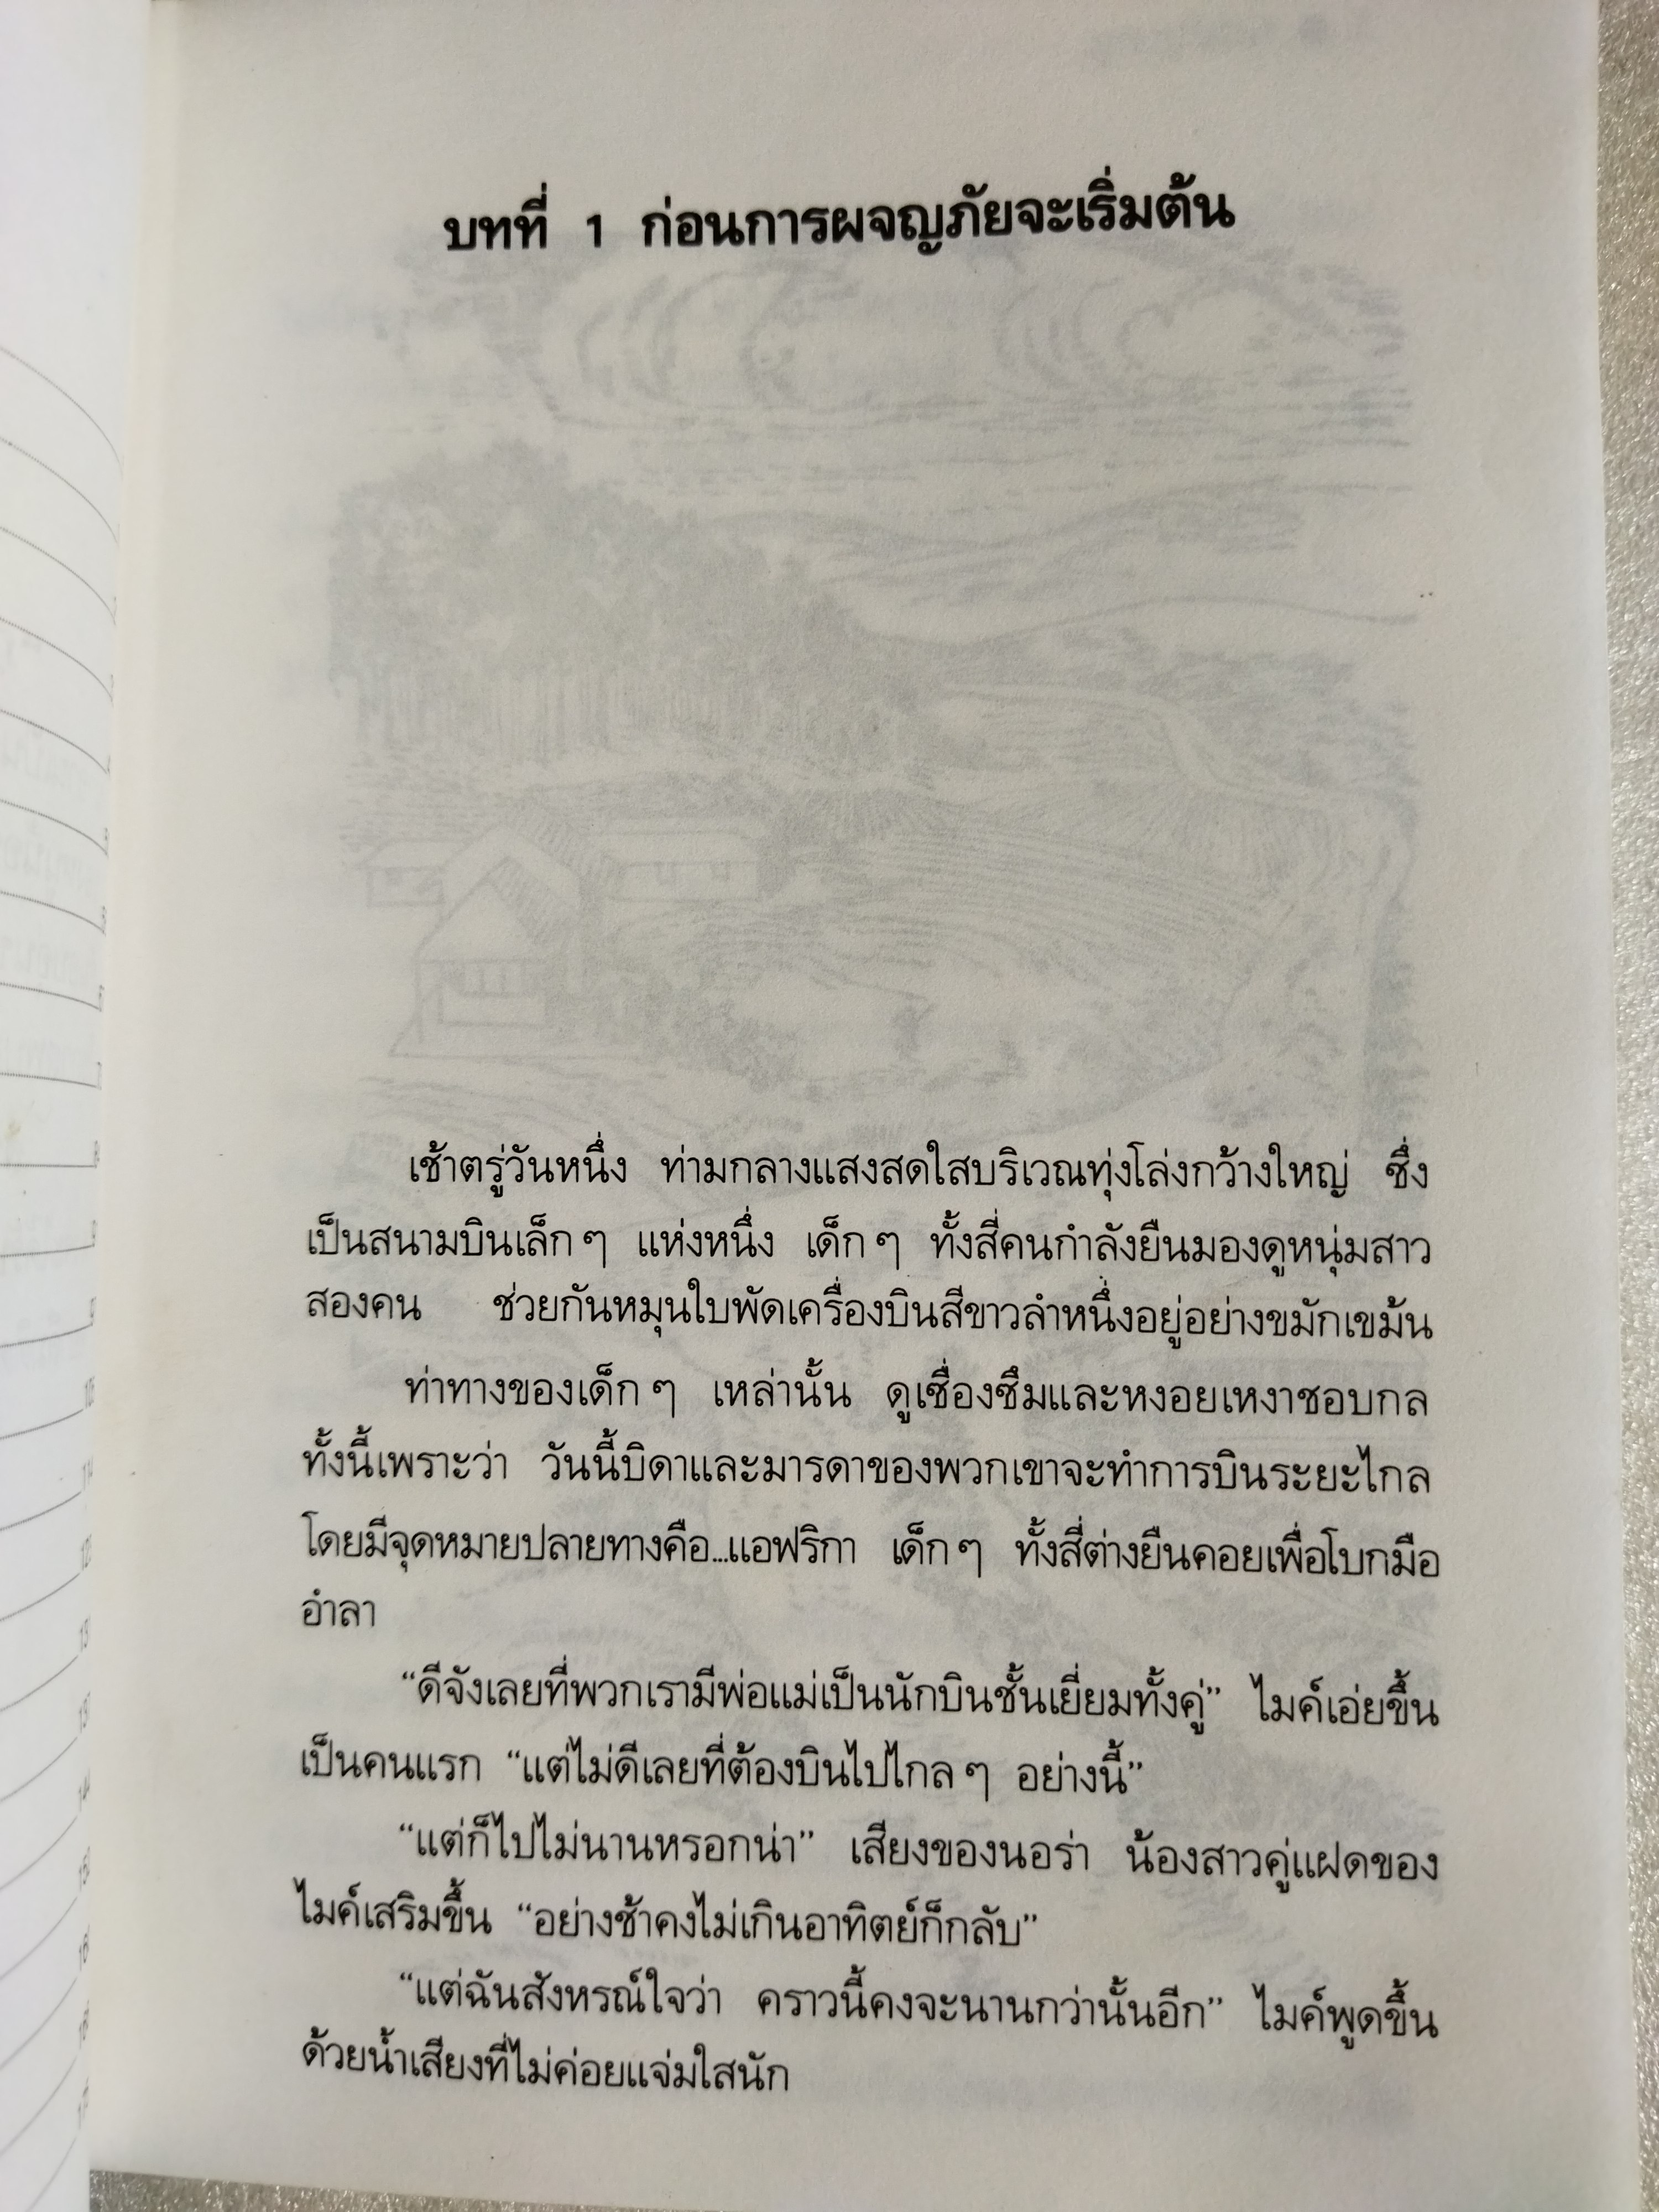 บทที่ 1 ก่อนการผจญภัยจะเริ่มต้น
เช้าตรู่วันหนึ่ง ท่ามกลางแสงสดใสบริเวณทุ่งโล่งกว้างใหญ่ ซึ่ง
เป็นสนามบินเล็ก ๆ แห่งหนึ่ง เด็ก ๆ ทั้งสี่คนกำลังยืนมองดูหนุ่มสาว
สองคน ช่วยกันหมุนใบพัดเครื่องบินสีขาวลำหนึ่งอยู่อย่างขมักเขม้น
ท่าทางของเด็ก ๆ เหล่านั้น ดูเซื่องซึมและหงอยเหงาชอบกล
ทั้งนี้เพราะว่า วันนี้บิดาและมารดาของพวกเขาจะทำการบินระยะไกล
โดยมีจุดหมายปลายทางคือ...แอฟริกา เด็ก ๆ ทั้งสี่ต่างยืนคอยเพื่อโบกมือ
อำลา
“ดีจังเลยที่พวกเรามีพ่อแม่เป็นนักบินชั้นเยี่ยมทั้งคู่” ไมค์เอ่ยขึ้น
เป็นคนแรก “แต่ไม่ดีเลยที่ต้องบินไปไกล ๆ อย่างนี้”
“แต่ก็ไปไม่นานหรอกน่า” เสียงของนอร่า น้องสาวคู่แฝดของ
ไมค์เสริมขึ้น “อย่างช้าคงไม่เกินอาทิตย์ก็กลับ”
“แต่ฉันสังหรณ์ใจว่า คราวนี้คงจะนานกว่านั้นอีก” ไมค์พูดขึ้น
ด้วยน้ำเสียงที่ไม่ค่อยแจ่มใสนัก